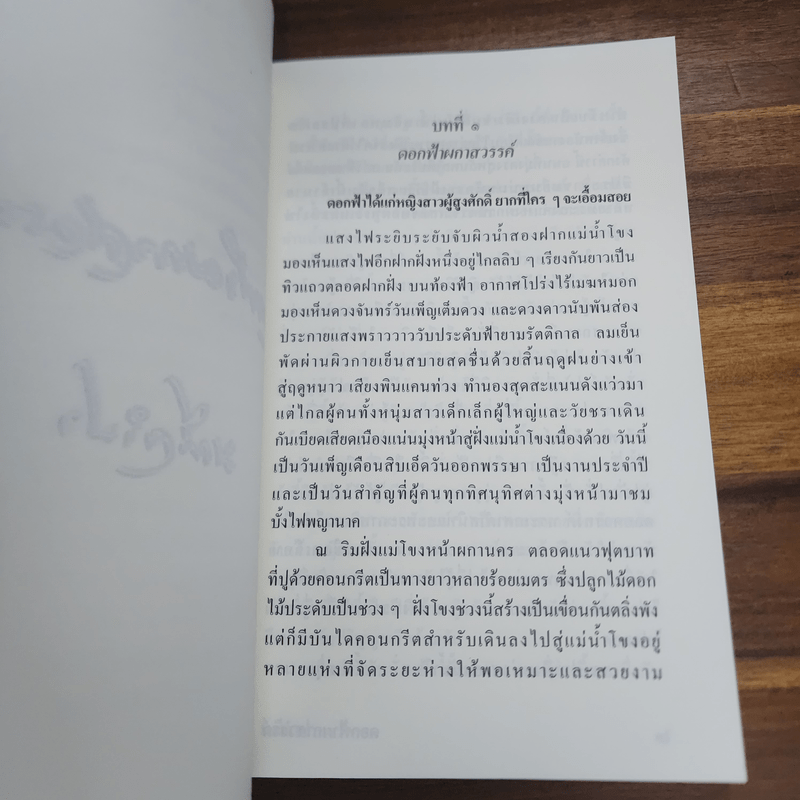 บทที่ ๑
ดอกฟ้าผกาสวรรค์
ดอกฟ้าได้แก่หญิงสาวผู้สูงศักดิ์ ยากที่ใคร ๆ จะเอื้อมสอย
แสงไฟระยิบระยับจับผิวน้ำสองฝากแม่น้ำโขง
มองเห็นแสงไฟอีกฝากฝั่งหนึ่งอยู่ไกลลิบ ๆ เรียงกันยาวเป็น
ทิวแถวตลอดฝากฝั่ง บนท้องฟ้า อากาศโปร่งไร้เมฆหมอก
มองเห็นดวงจันทร์วันเพ็ญเต็มดวง และดวงดาวนับพันส่อง
ประกายแสงพราววาววับประดับฟ้ายามรัตติกาล ลมเย็น
พัดผ่านผิวกายเย็นสบายสดชื่นด้วยสิ้นฤดูฝนย่างเข้า
สู่ฤดูหนาว เสียงพินแคนท่วง ทำนองสุดสะแนนดังแว่วมา
แต่ไกลผู้คนทั้งหนุ่มสาวเด็กเล็กผู้ใหญ่และวัยชราเดิน
กันเบียดเสียดเนืองแน่นมุ่งหน้าสู่ฝั่งแม่น้ำโขงเนื่องด้วย วันนี้
เป็นวันเพ็ญเดือนสิบเอ็ดวันออกพรรษา เป็นงานประจำปี
และเป็นวันสำคัญที่ผู้คนทุกทิศนุทิศต่างมุ่งหน้ามาชม
บั้งไฟพญานาค
ณ ริมฝั่งแม่โขงหน้าผกานคร ตลอดแนวฟุตบาท
ที่ปูด้วยคอนกรีตเป็นทางยาวหลายร้อยเมตร ซึ่งปลูกไม้ดอก
ไม้ประดับเป็นช่วง ๆ ฝั่งโขงช่วงนี้สร้างเป็นเขื่อนกันตลิ่งพัง
แต่ก็มีบันไดคอนกรีตสำหรับเดินลงไปสู่แม่น้ำโขงอยู่
หลายแห่งที่จัดระยะห่างให้พอเหมาะและสวยงาม